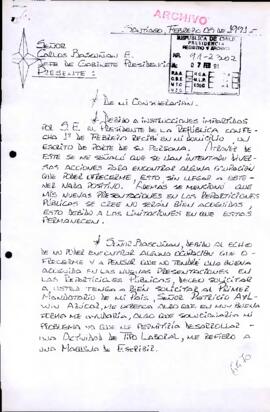 ARCHIVO
SANTIAGO, FEBRERO 05 DE 1991.-
REPUBLICA DE CHILE
PRESIDENCIA
REGISTRO Y ARCHIVO
NR. 91-2302
07 FEB 91
SEÑOR
CARLOS BASCUÑAN E.
JEFE DE GABINETE PRESIDENCIAL
PRESENTE:
DE MI CONSIDERACION.
DEBIDO A INSTRUCCIONES IMPARTIDAS
POR S.E. EL PRESIDENTE DE LA REPÚBLICA CON FE-
CHA 1º DE FEBRERO RECIBÍ EN MI DOMICILIO UN
ESCRITO DE PARTE DE SU PERSONA. ATRAVEZ DE
ESTE SE ME SEÑALÓ QUE SE HAN INTENTADO DIVER-
SAS ACCIONES PARA ENCONTRAR ALGUNA OCUPACIÓN
QUE PODER OFRECERME, ESTO SIN LLEGAR A OBTE-
NER NADA POSITIVO. ADEMAS SE MENCIONÓ QUE
MIS NUEVAS PRESENTACIONES EN LAS REPARTICIONES
PÚBLICAS SE CREE NO SERÁN BIEN ACOGIDAS,
ESTO DEBIDO A LAS LIMITACIONES EN QUE ESTAS
PERMANECEN.
SEÑOR BASCUÑAN, DEBIDO AL ECHO
DE NO PODER ENCONTRAR ALGUNA OCUPACIÓN QUE O-
FRECERME Y A PENSAR QUE NO TENDRÉ UNA BUENA
ACOGIDA EN LAS NUEVAS PRESENTACIONES EN
LAS REPARTICIONES PÚBLICAS, DESEO SOLICITAR
A USTED TENGA A BIEN SOLICITAR AL PRIMER
MANDATARIO DE MI PAIS, SEÑOR PATRICIO AYL-
WIN AZOCAR, ME OFREZCA ALGO QUE EN MUY BUENA
FORMA ME AYUDARIA, ALGO QUE SOLUCIONARIA MI
PROBLEMA YA QUE ME PERMITIRIA DESARROLLAR
UNA ACTIVIDAD DE TIPO LABORAL, ME REFIERO A
UNA MAQUINA DE ESCRIBIR.